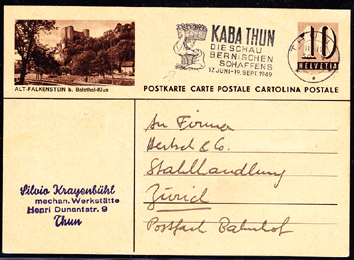 ALT-FALKENSTEIN b. Balsthal-Klus
KABA THUN
DIE SCHAU
BERNISCHEN
SCHAFFENS
12. JUNI-19. SEPT. 1949
10
HELVETIA
POSTKARTE CARTE POSTALE CARTOLINA POSTALE
An Firma
& Co.
Stahlhandlung
Zürich
Postfach Bahnhof
Silvio Krayenbühl
mechan. Werkstätte
Henri Dunantstr. 9
Thun